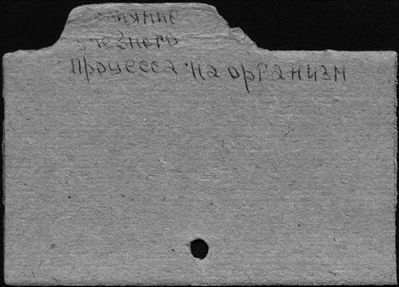 влияние
учебного
процесса на организм